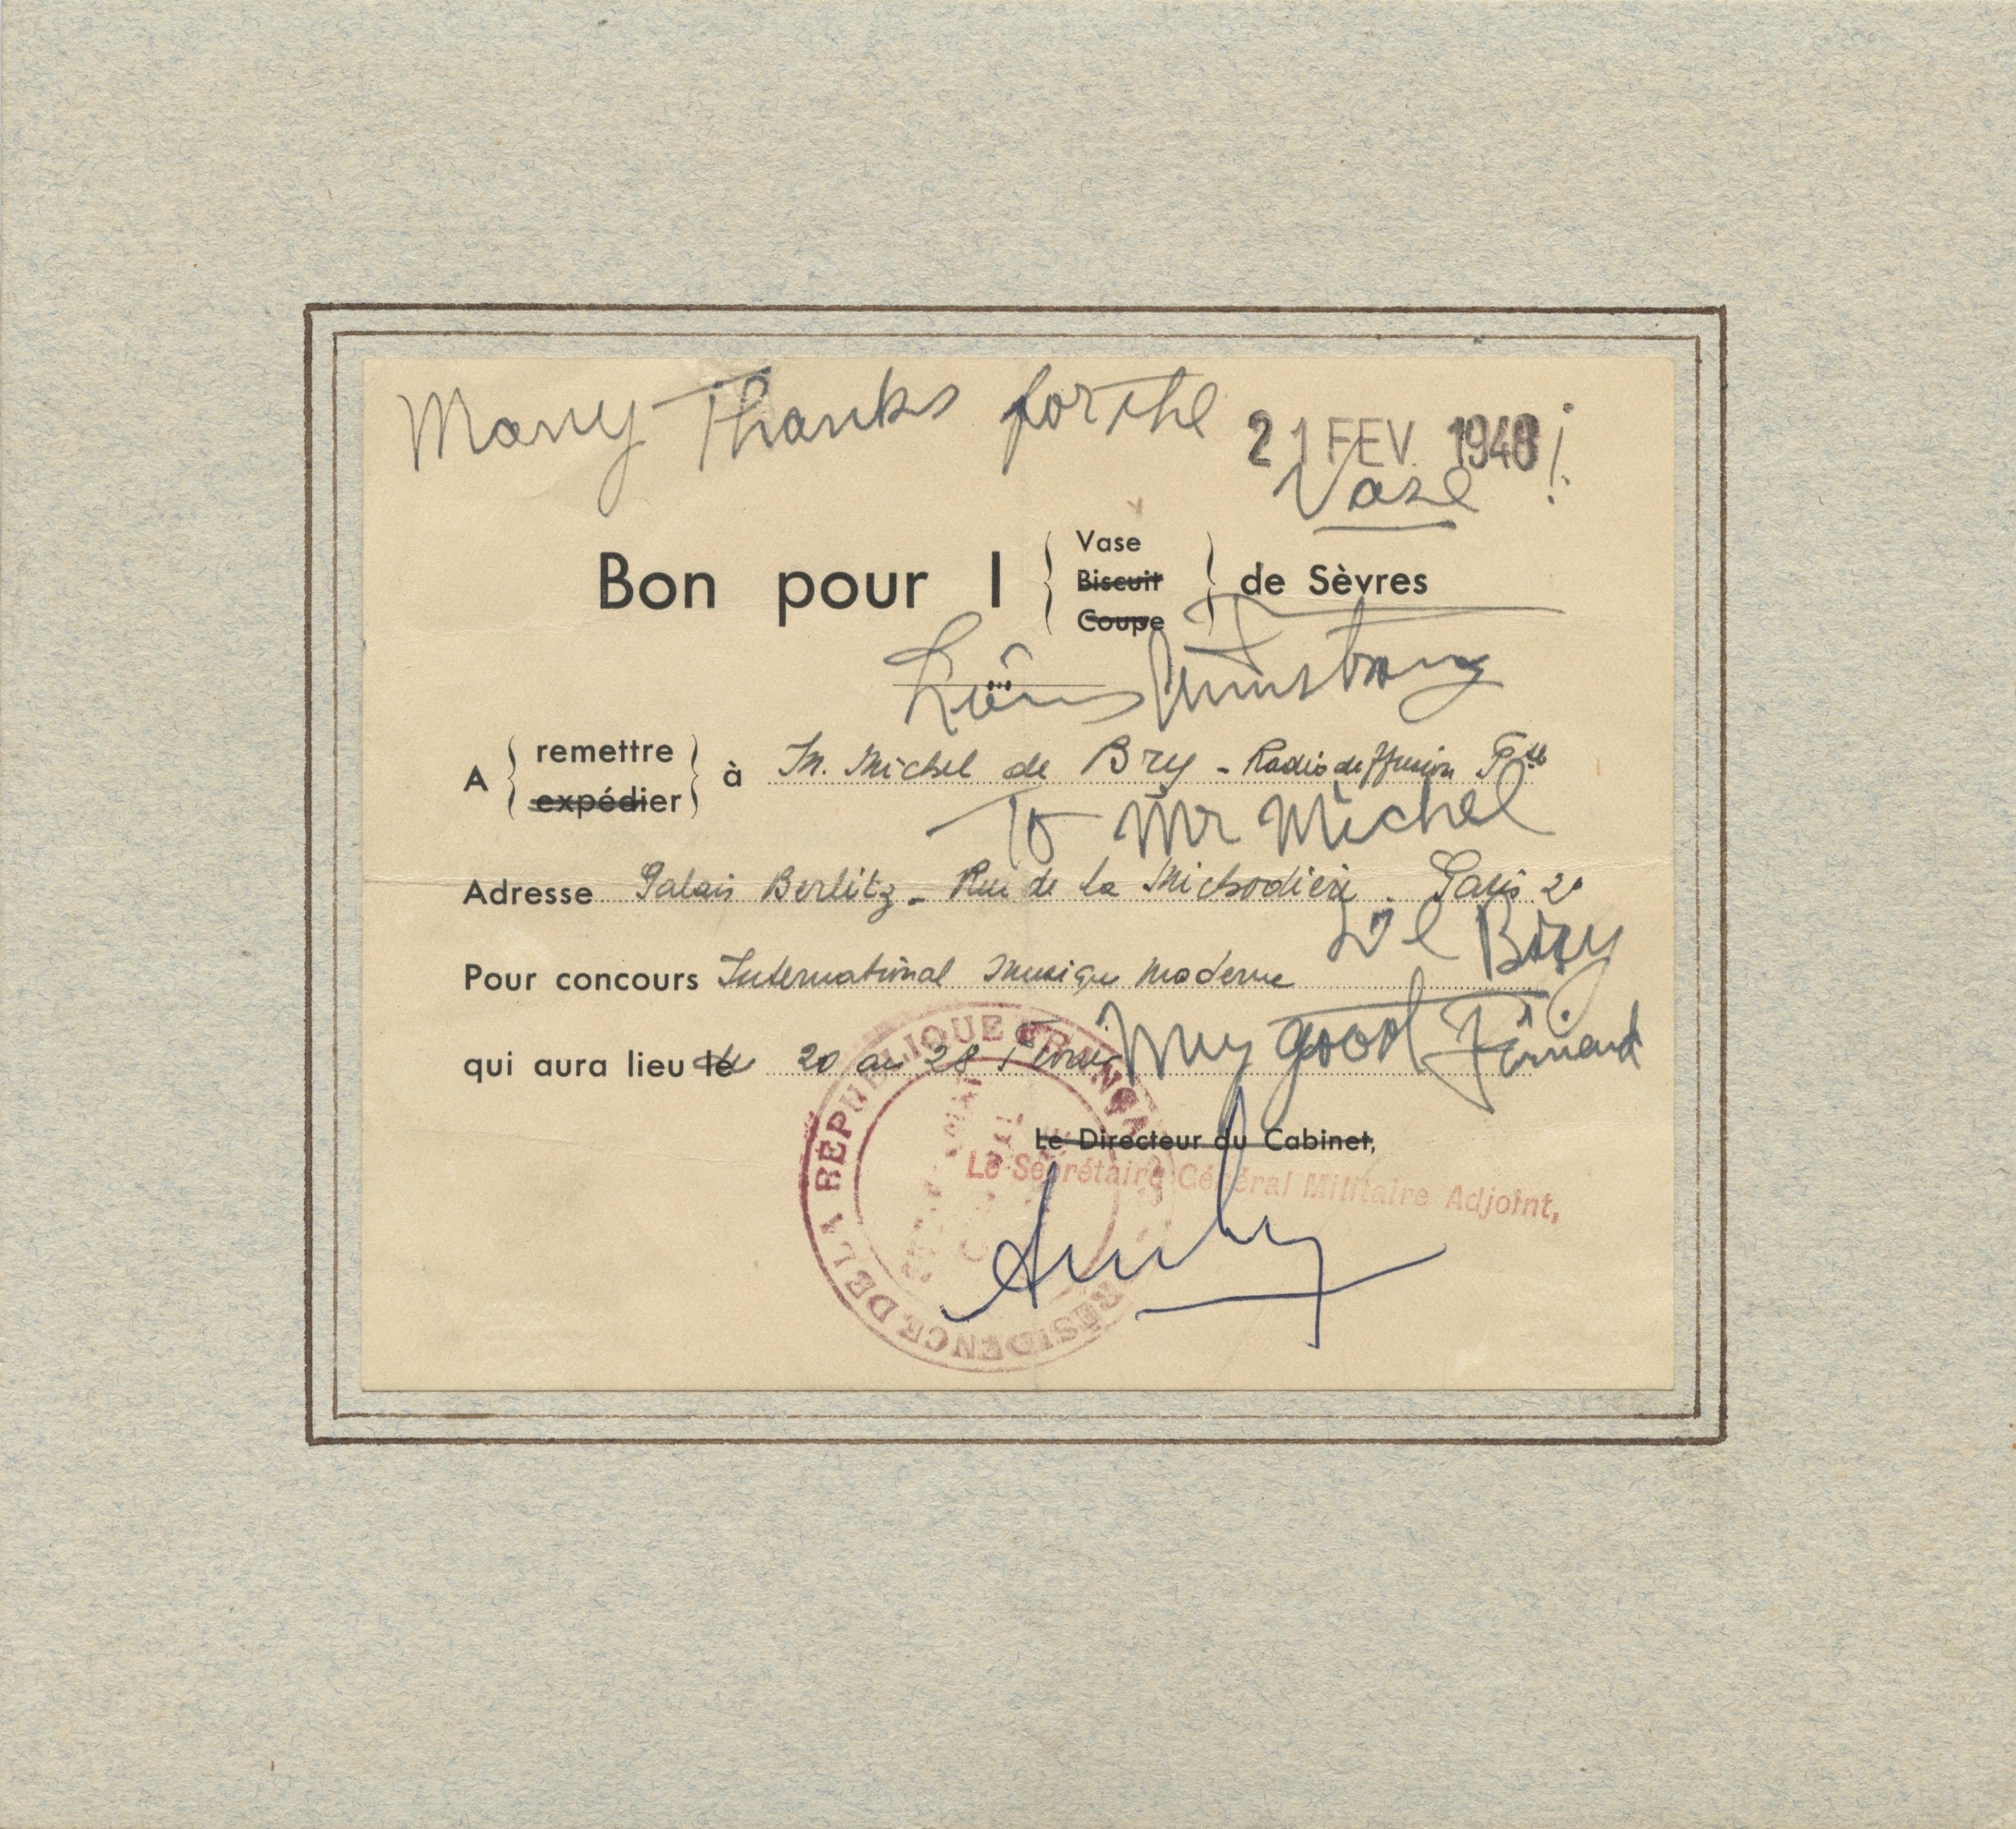 Many Thanks for the
21 FEV. 1948
Vase !
Bon pour 1 { Vase Biscuit Coupe } de Sèvres
Louis Armstrong
A { remettre expédier } à M. Michel de Bry - Radiodiffusion Fse
To Mr Michel
Adresse Palais Berlitz - Rue de La Michodière. Paris 2e
De Bry
Pour concours International Musique Moderne
My good Friend
qui aura lieu le du 20 au 28 Février
Le Directeur du Cabinet,
Le Secrétaire Général Militaire Adjoint,
PRÉSIDENCE DE LA RÉPUBLIQUE FRANÇAISE